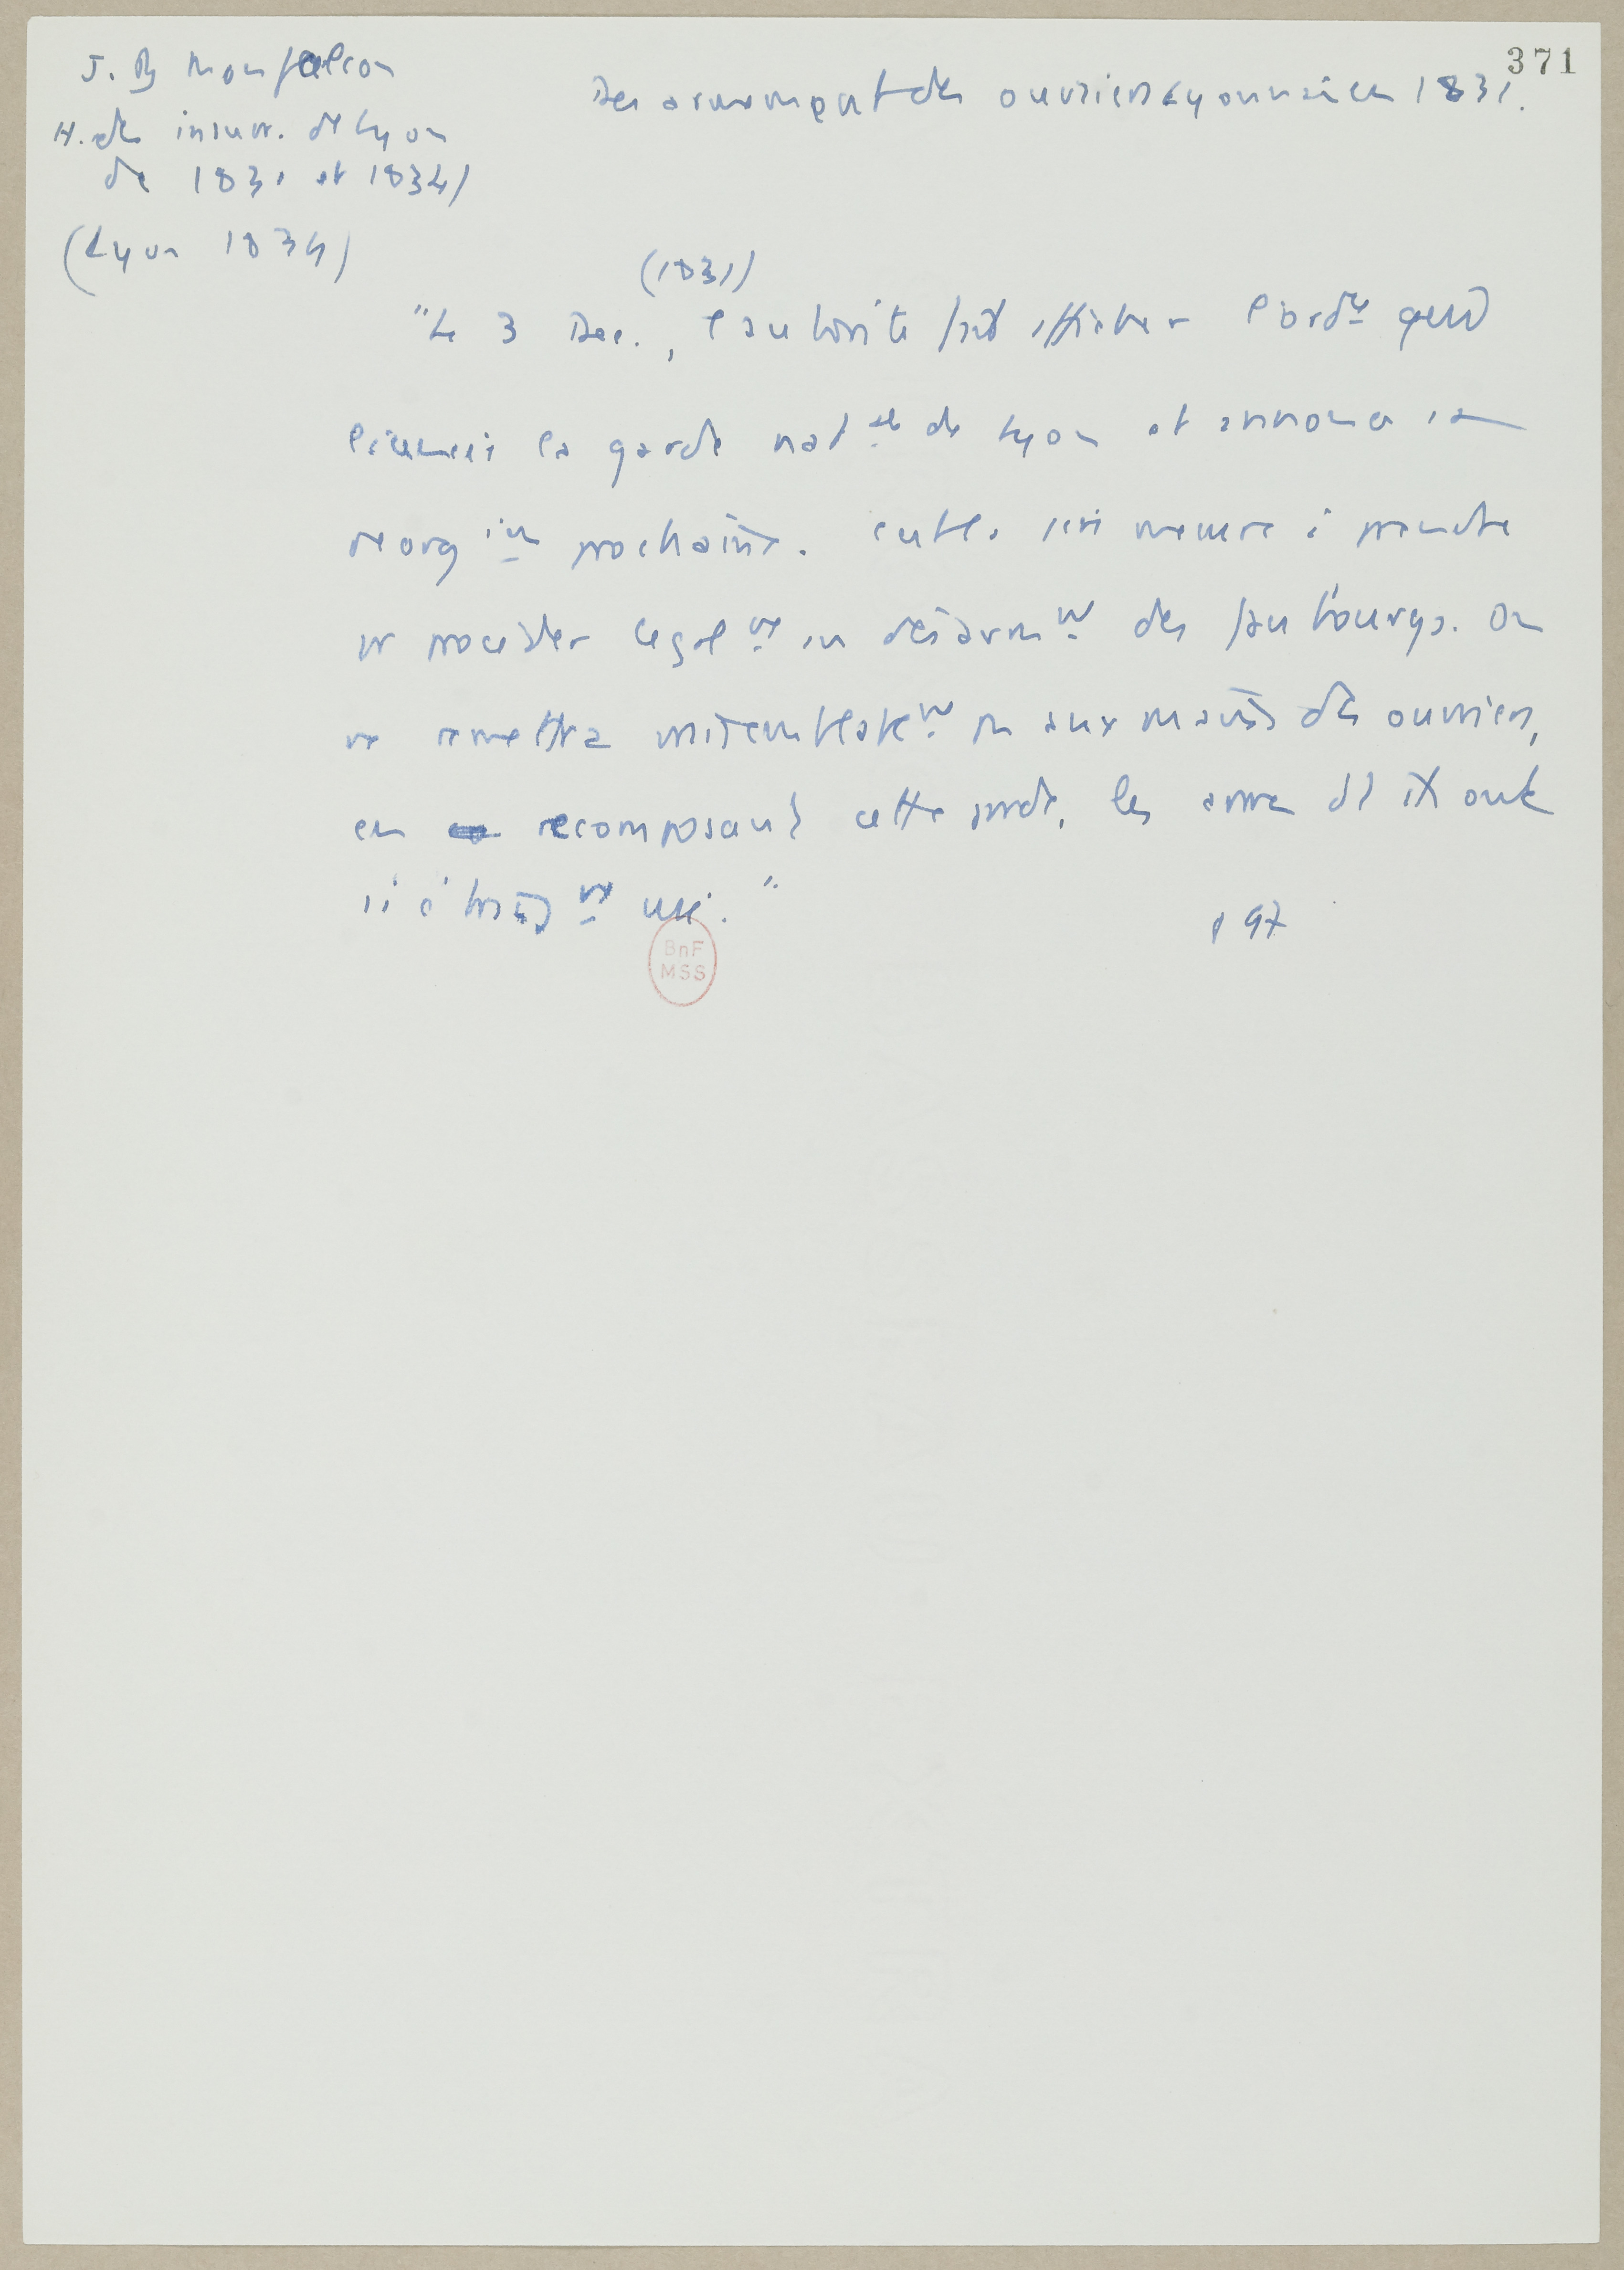 371
J. B Monfalcon
H. des insurr. de Lyon
de 1831 et 1834)
(Lyon 1834)
Desarmement des ouvriers Lyonnais en 1831.
(1831)
"Le 3 Dec., l'autorité fait afficher l'ordce qui
licencie la garde natale de Lyon et annonce sa
reorgion prochaine. C'etait la mesure à prendre
pr procéder legalnt au désarmnt des faubourgs. On
ne remettra vraisemblablent pas aux mains des ouvriers,
en recomposant cette garde, les armes dt ils ont
si étrangnt usé."
p 97
BnF
MSS